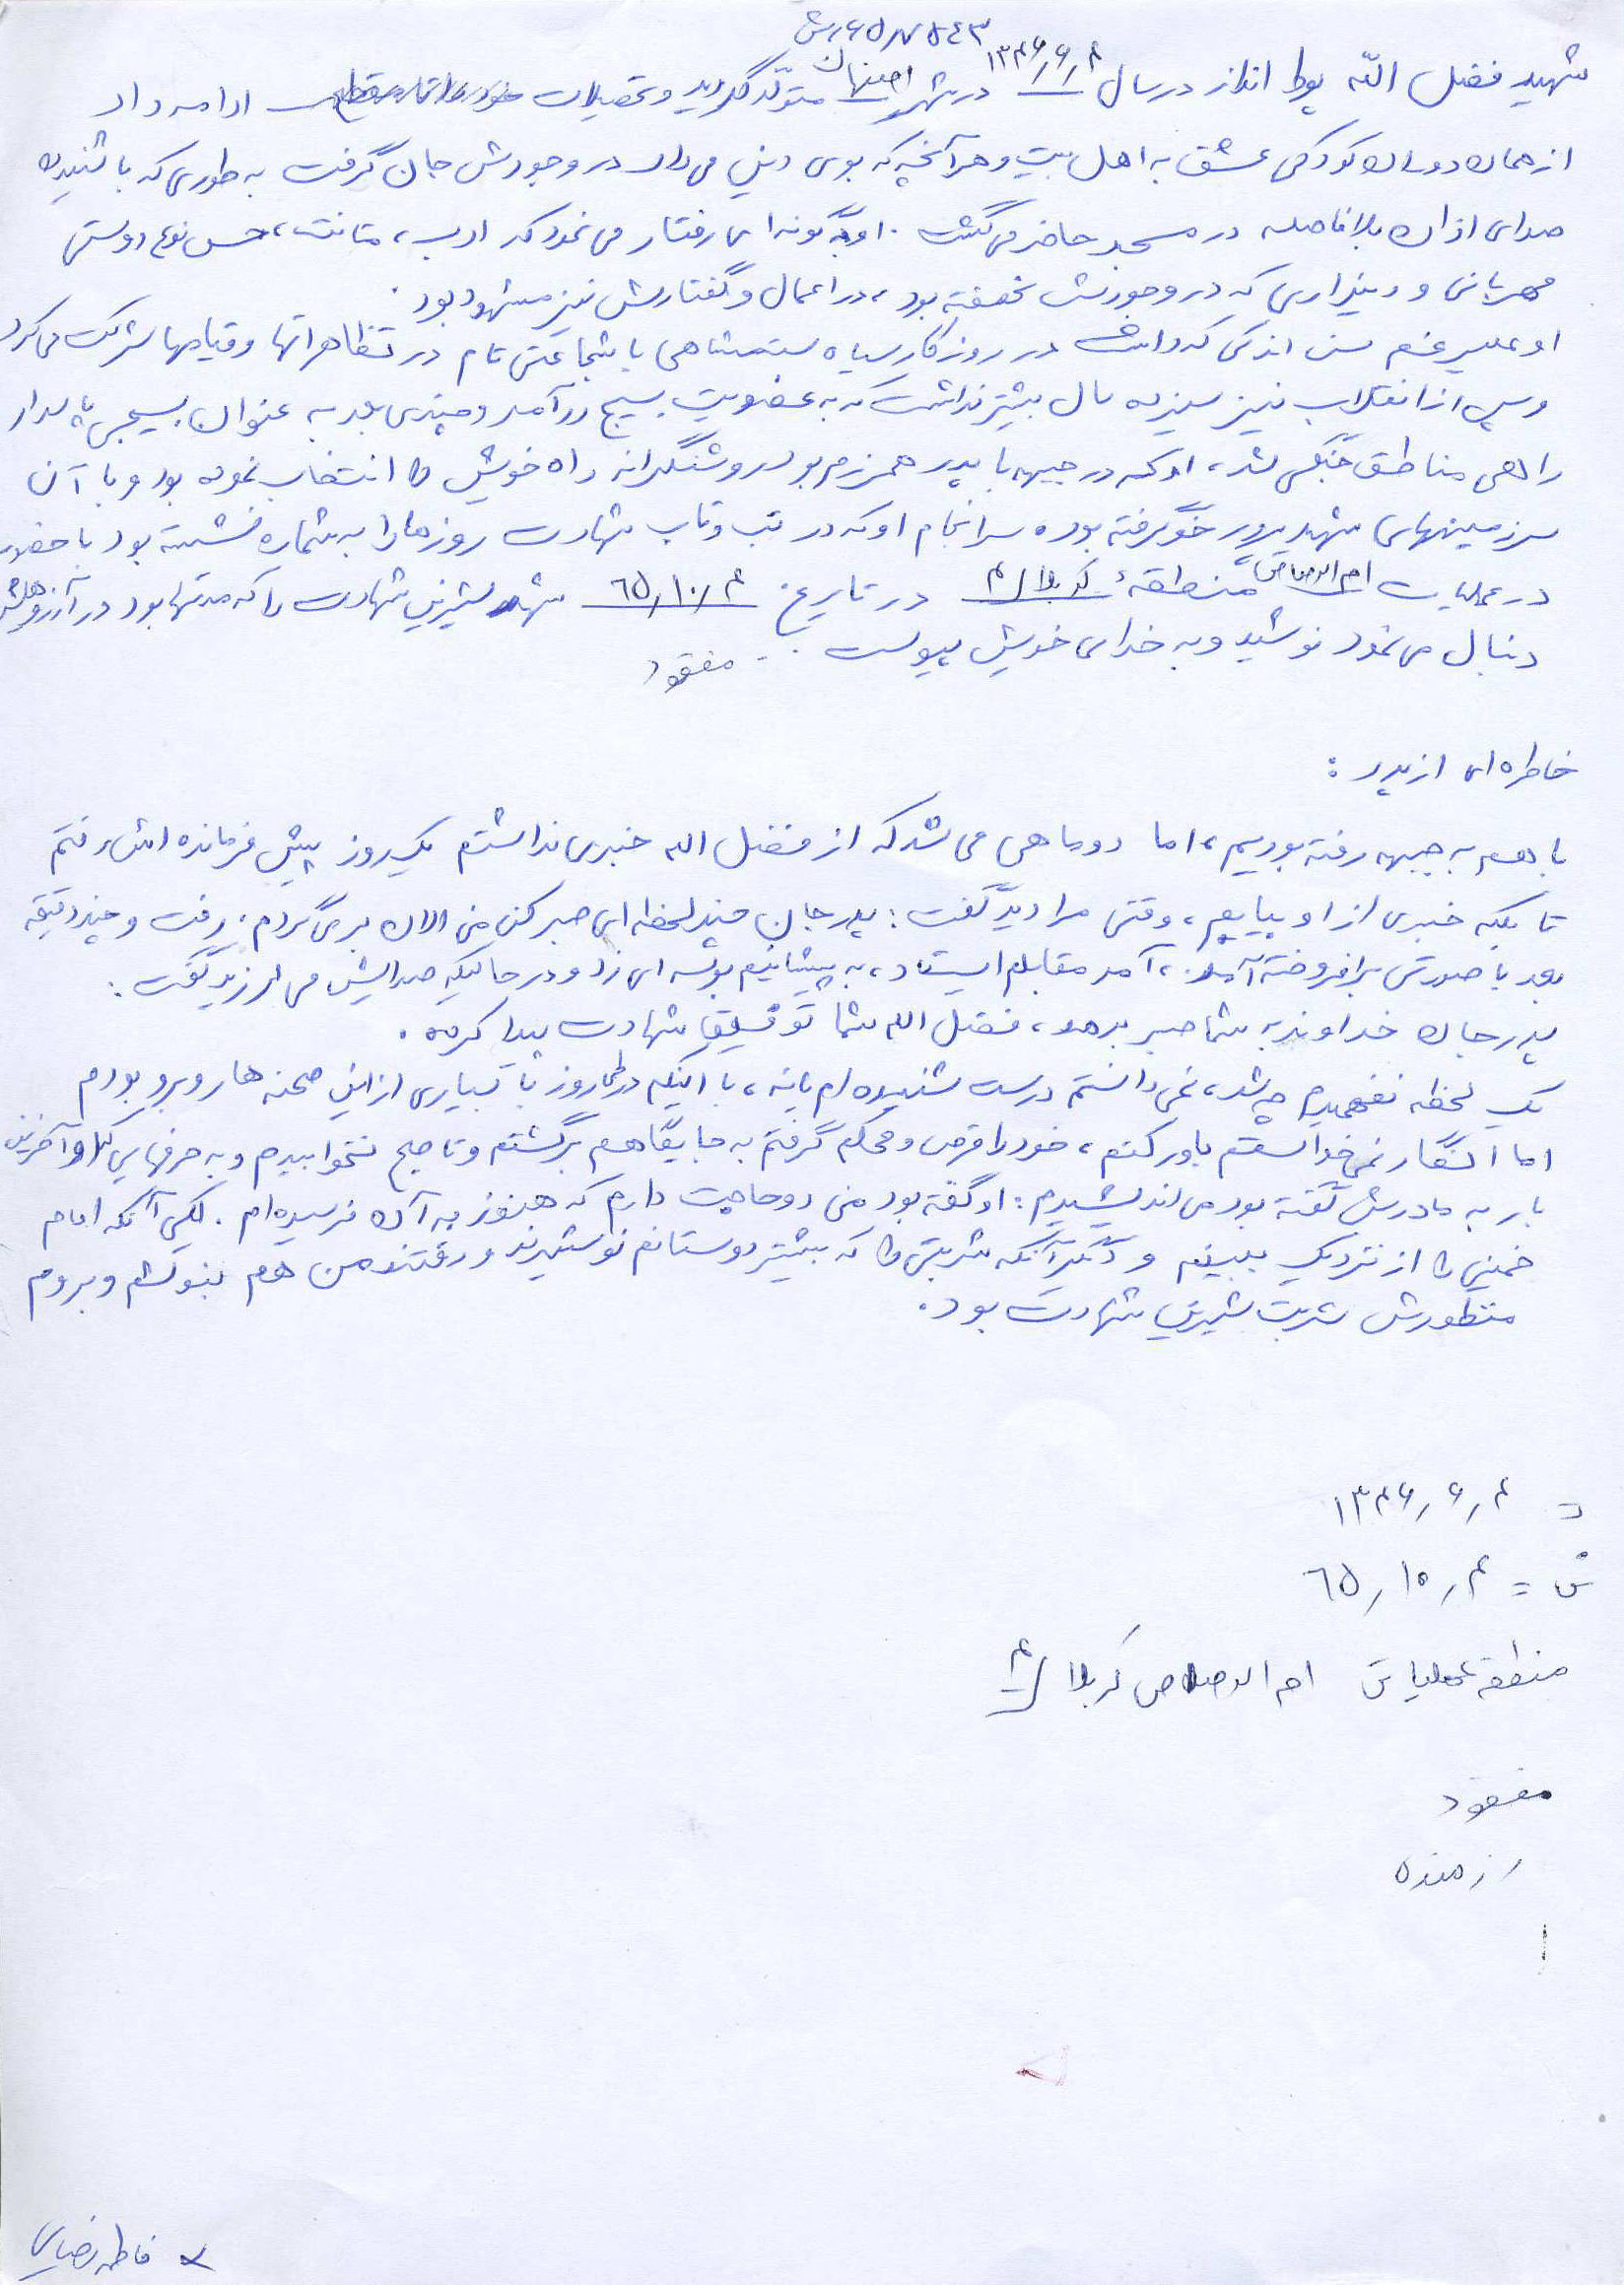 شهید فضل الله انداز در سال ۱۳۴۶/۶/۴ در شهر اصفهان متولد گردید و تحصیلات ادامه داد
از همان دوران کودکی عشق به اهل بیت و هر آنچه که بوی دین می داد در وجودش جان گرفت به طوری که با شنیدن
صدای اذان بلافاصله در مسجد حاضر می گشت . او به گونه ای رفتار می نمود که ادب ، متانت ، حس نوع دوستی
مهربانی و دینداری که در وجودش نهفته بود ، در اعمال و گفتارش نیز مشهود بود .
او علیرغم سن اندکی که داشت در روزگار سیاه ستمشاهی با شجاعتی تام در تظاهراتها و قیامها شرکت می کرد
و پس از انقلاب نیز سیزده سال بیشتر نداشت که به عضویت بسیج درآمد و چندی بعد به عنوان بسیجی پاسدار
راهی مناطق جنگی شد ، او که در جبهه با پدر همرزم بود روشنگرانه راه خویش را انتخاب نموده بود و با آن
سرزمینهای شهید پرور خو گرفته بود سرانجام او که در تب و تاب شهادت روزها را به شماره نشسته بود با حضور
در عملیات ام الرصاص منطقهٔ کربلا/۴ در تاریخ ٦٥/۱۰/۴ شهد شیرین شهادت را که مدتها بود در آرزوهایش
دنبال می نمود نوشید و به خدای خویش پیوست . مفقود
خاطره ای از پدر :
با هم به جبهه رفته بودیم ، اما دو ماهی می شد که از فضل اله خبری نداشتم یک روز پیش فرمانده اش رفتم
تا بلکه خبری از او بیابم ، وقتی مرا دید گفت : پدر جان چند لحظه ای صبر کن من الان بر می گردم . رفت و چند دقیقه
بعد با صورتی برافروخته آمد ، آمد مقابلم ایستاد ، به پیشانیم بوسه ای زد و در حالیکه صدایش می لرزید گفت :
پدر جان خداوند به شما صبر بدهد ، فضل اله شما توفیق شهادت پیدا کرده .
یک لحظه نفهمیدم چه شد ، نمی دانستم درست شنیده ام یا نه ، با اینکه در طی روز با بسیاری از این صحنه ها روبرو بودم
اما انگار نمی خواستم باور کنم ، خود را قرص و محکم گرفتم به جایگاهم برگشتم و تا صبح نخوابیدم و به حرفهایی که او آخرین
بار به مادرش گفته بود می اندیشیدم : او گفته بود من دو حاجت دارم که هنوز به آن نرسیده ام . یکی آنکه امام
خمینی را از نزدیک ببینم و دیگر آنکه شربتی را که بیشتر دوستانم نوشیدند و رفتند من هم بنوشم و بروم
منظورش شربت شیرین شهادت بود .
ت = ۱۳۴۶/۶/۴
ش = ٦٥/۱۰/۴
منطقه عملیاتی ام الرصاص کربلا/۴
مفقود
رزمنده
فاطمه رضایی